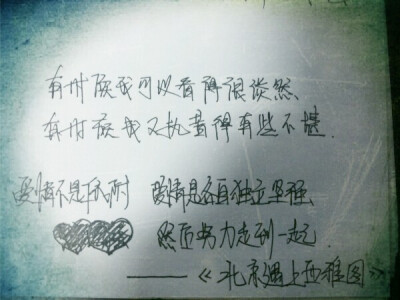 有时候我可以看得很淡然
有时候我又执着得有些不堪.
爱情不是依附 爱情是各自独立坚强,
然后努力走到一起.
——《北京遇上西雅图》